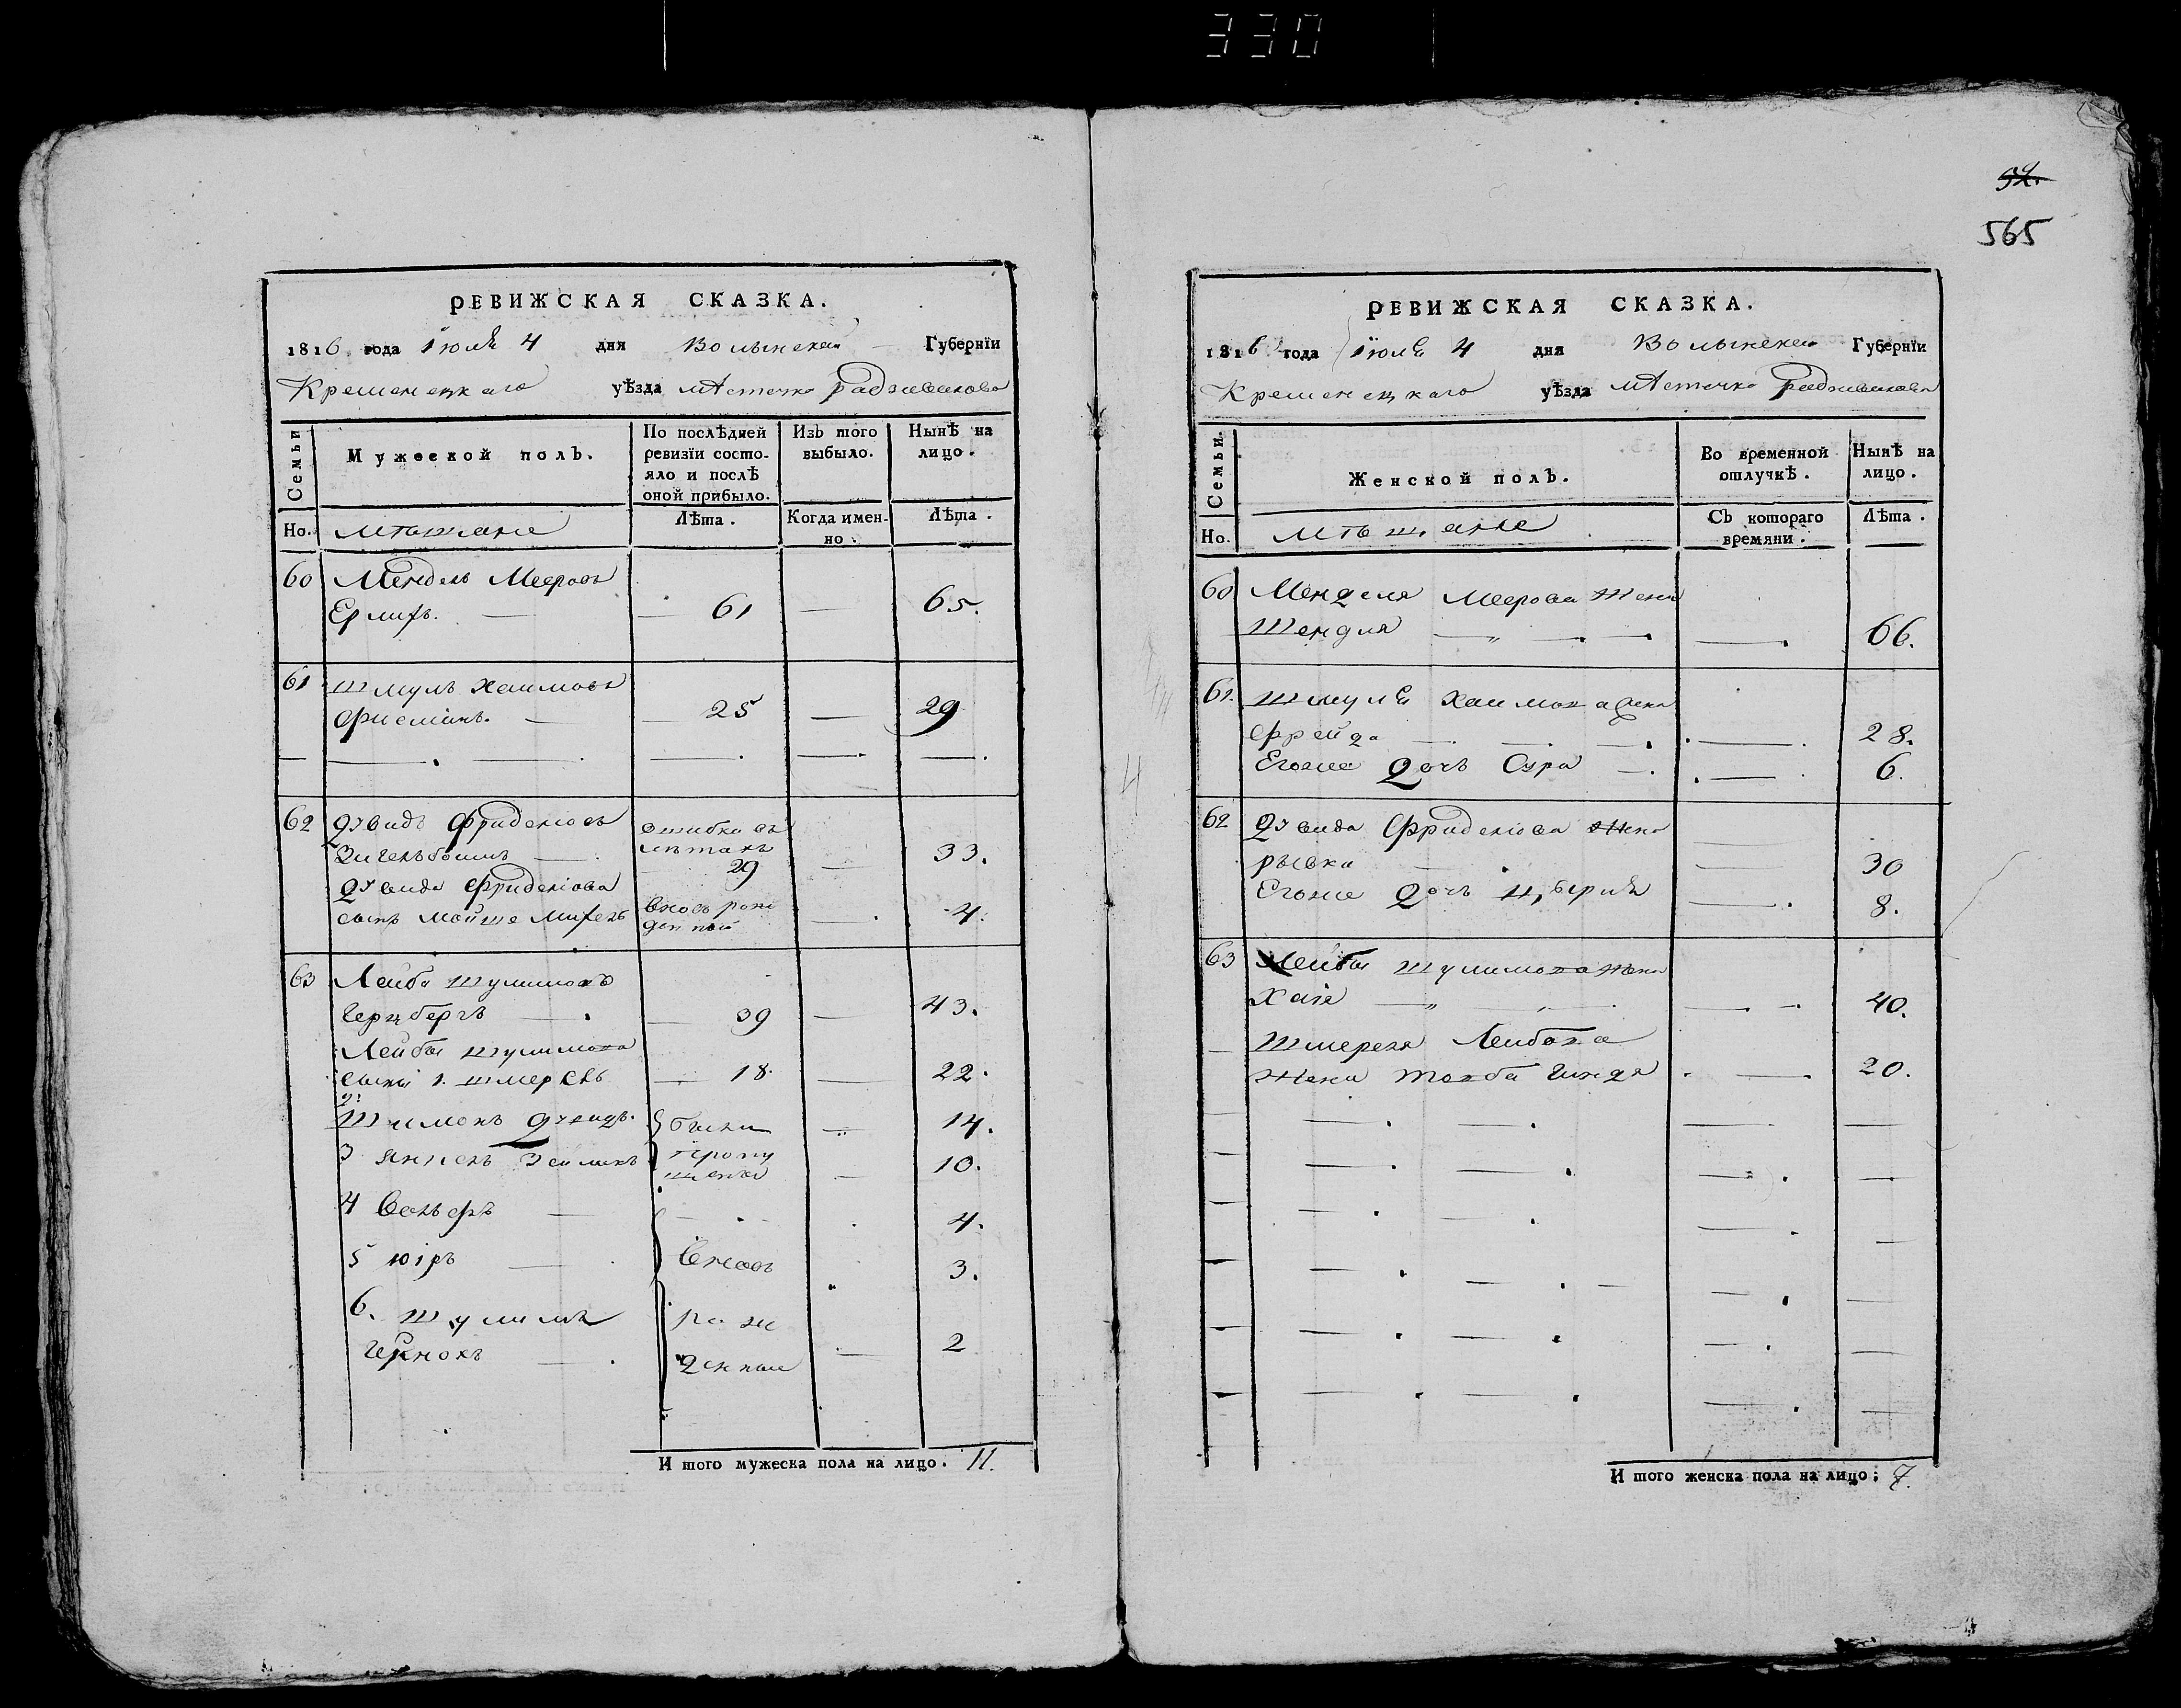 330
РЕВИЖСКАЯ СКАЗКА.
1816 года Июля 4 дня Волынской Губернїи
Кременецкаго уѣзда мѣстечка Радзивилова
Семьи
Мужеской полъ.
По послѣдней ревизїи состояло и послѣ оной прибыло.
Изъ того выбыло.
Нынѣ на лицо.
Но. мѣщане
Лѣта.
Когда именно.
Лѣта.
60 Мендель Мееровъ
61 — 65.
61 Шмуль Хаимовъ
25 — 29
62 Давидъ
ошибка въ
лѣтахъ
29 — 33.
Давида
сынъ Мойше
вновь рож
денной — 4.
63 Лейба Шулимовъ
Герцбергъ — 39 — 43.
Лейбы Шулимова
сыны 1. Шмерель — 18. — 22.
2.
Шимонъ Давидъ. были 14.
3 Янкель Зейликъ пропу
щены 10.
4 Вольфъ — 4.
5 вновь 3.
6. Шулимъ рож
— денные — 2
И того мужеска пола на лицо. 11.
92.
565
РЕВИЖСКАЯ СКАЗКА.
1816 года Июля 4 дня Волынской Губернїи
Кременецкаго уѣзда мѣстечка Радзивилова
Семьи.
Женской полъ.
Во временной отлучкѣ.
Нынѣ на лицо.
Но. мѣщане
Съ котораго времяни.
Лѣта.
60 Менделя Меерова жена
Шендля 66.
61. Шмуля Хаимова жена
Фрейда 28.
Егоже дочь Сура 6.
62 Давида жена
Рывка 30
Егоже дочь 8.
63 Лейбы Шулимова жена
Хая 40.
Шмереля Лейбова
жена Товба Гинда 20.
И того женска пола на лицо; 7.